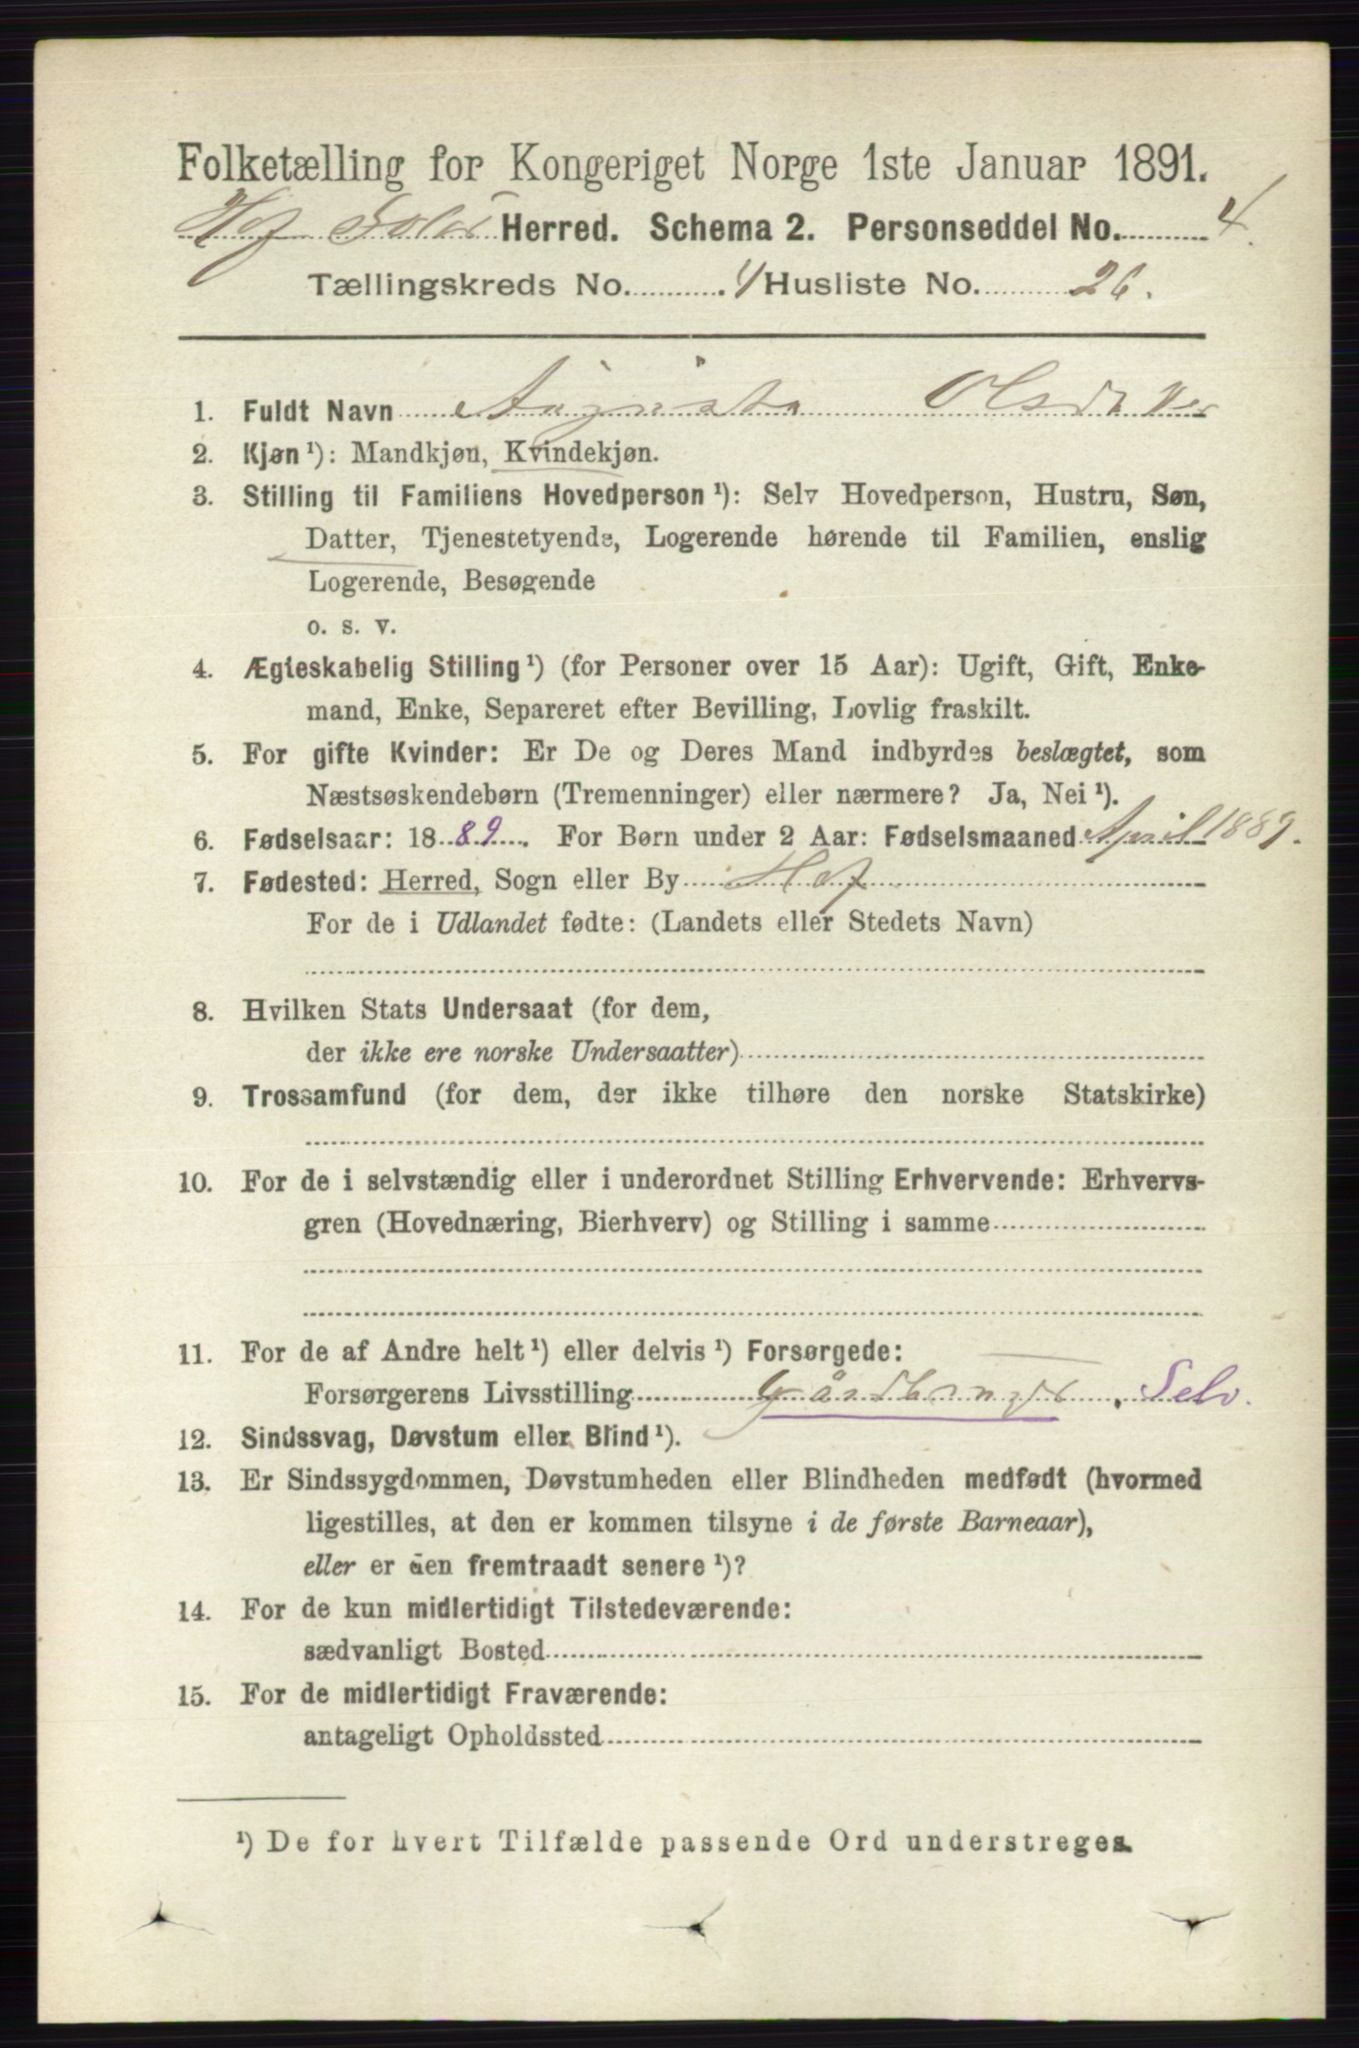 Folketælling for Kongeriget Norge 1ste Januar 1891.
Hof Solør Herred. Schema 2. Personseddel No. 4.
Tællingskreds No. 4 Husliste No. 26.
1. Fuldt Navn Augusta Olsdatter
2. Kjøn ¹): Mandkjøn, Kvindekjøn.
3. Stilling til Familiens Hovedperson ¹): Selv Hovedperson, Hustru, Søn,
Datter, Tjenestetyende, Logerende hørende til Familien, enslig
Logerende, Besøgende
o. s. v.
4. Ægteskabelig Stilling ¹) (for Personer over 15 Aar): Ugift, Gift, Enke-
mand, Enke, Separeret efter Bevilling, Lovlig fraskilt.
5. For gifte Kvinder: Er De og Deres Mand indbyrdes beslægtet, som
Næstsøskendebørn (Tremenninger) eller nærmere? Ja, Nei ¹).
6. Fødselsaar: 1889. For Børn under 2 Aar: Fødselsmaaned April 1889.
7. Fødested: Herred, Sogn eller By Hof
For de i Udlandet fødte: (Landets eller Stedets Navn)
8. Hvilken Stats Undersaat (for dem,
der ikke ere norske Undersaatter)
9. Trossamfund (for dem, der ikke tilhøre den norske Statskirke)
10. For de i selvstændig eller i underordnet Stilling Erhvervende: Erhvervs-
gren (Hovednæring, Bierhverv) og Stilling i samme
11. For de af Andre helt ¹) eller delvis ¹) Forsørgede:
Forsørgerens Livsstilling Gårdbruger, Selv.
12. Sindssvag, Døvstum eller Blind ¹).
13. Er Sindssygdommen, Døvstumheden eller Blindheden medfødt (hvormed
ligestilles, at den er kommen tilsyne i de første Barneaar),
eller er den fremtraadt senere ¹)?
14. For de kun midlertidigt Tilstedeværende:
sædvanligt Bosted
15. For de midlertidigt Fraværende:
antageligt Opholdssted
¹) De for hvert Tilfælde passende Ord understreges.